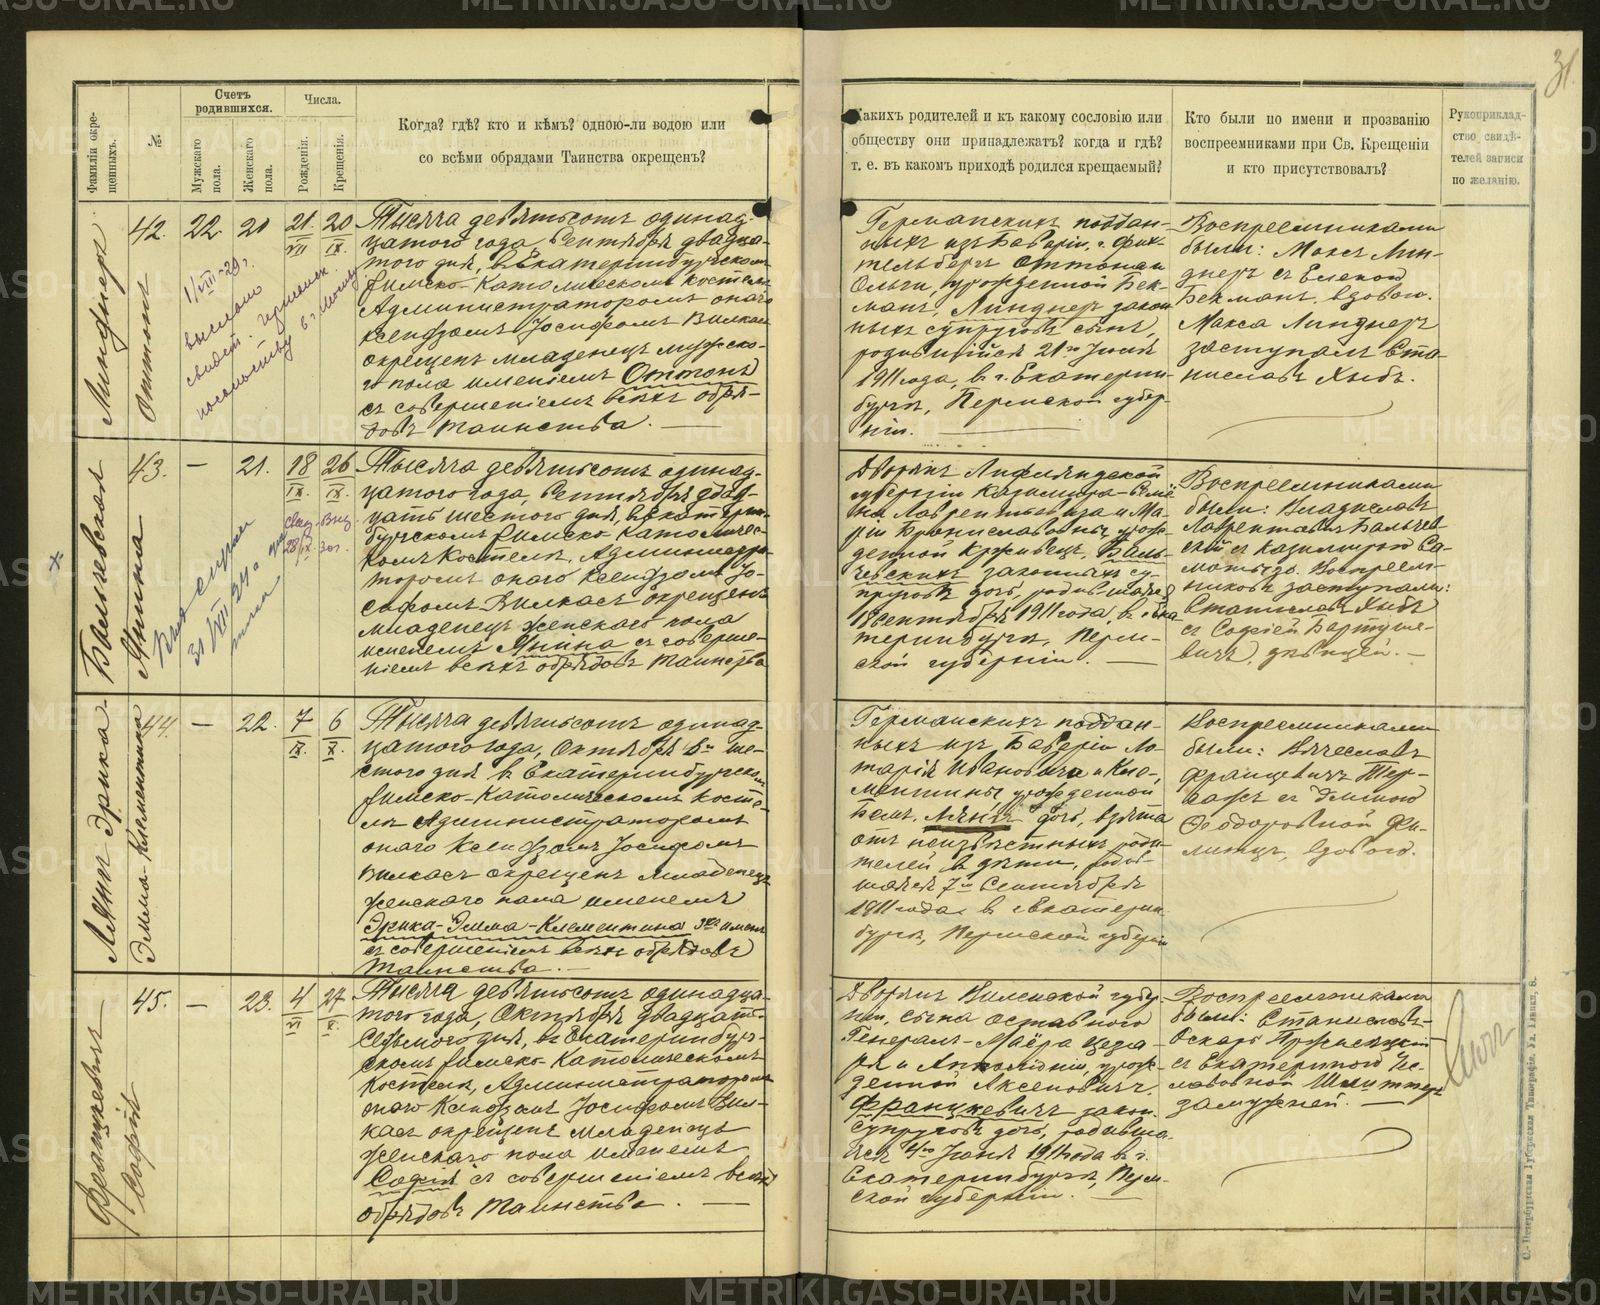 31.
Фамиліи окре-
щенныхъ.
№
Счетъ
родившихся.
Мужскаго
пола.
Женскаго
пола.
Числа.
Рожденія.
Крещенія.
Когда? гдѣ? кто и кѣмъ? одною-ли водою или
со всѣми обрядами Таинства окрещенъ?
Какихъ родителей и къ какому сословію или
обществу они принадлежатъ? когда и гдѣ?
т. е. въ какомъ приходѣ родился крещаемый?
Кто были по имени и прозванію
воспреемниками при Св. Крещеніи
и кто присутствовалъ?
Рукоприклад-
ство свидѣ-
телей записи
по желанію.
Линднеръ
Оттонъ
42. 22. 20 21 VII 20 IX.
выслано
свидѣт. германск.
посольству въ г. Москву
Тысяча девятьсотъ одинад-
цатого года, Сентября двадца-
того дня, въ Екатеринбургскомъ
Римско-Католическомъ костелѣ
Администраторомъ онаго
Ксендзомъ Іосифомъ Вилкасъ
окрещенъ младенецъ мужско-
го пола именемъ Оттонъ
съ совершеніемъ всѣхъ обря-
довъ Таинства.
Германскихъ поддан-
ныхъ изъ Баваріи, г. Фих-
тельбергъ Оттона и
Ольги, урожденной Бек-
манъ, Линднеръ закон
ныхъ супруговъ сынъ,
родившійся 21го Іюля
1911 года, въ г. Екатерин-
бургѣ, Пермской губер-
ніи.
Воспреемниками
были: Максъ Лин-
днеръ съ Еленой
Бекманъ, вдовою.
Макса Линднеръ
заступалъ Ста-
ниславъ Хыбъ.
Бальчевская
Янина
43. — 21. 18 IX. 26 IX.
Тысяча девятьсотъ одинад-
цатого года, Сентября двад-
цать шестого дня, въ Екатерин-
бургскомъ Римско-Католичес-
комъ Костелѣ, Администра-
торомъ онаго Ксендзомъ Іо-
сифомъ Вилкасъ окрещенъ
младенецъ женского пола
именемъ Янина съ соверше-
ніемъ всѣхъ обрядовъ Таинства
Дворянъ Лифляндской
губерніи Казимира-Семё
на Лаврентьевича и Ма-
ріи Брониславовны, урож-
денной Крживецъ, Баль-
чевскихъ законныхъ су-
пруговъ дочь, родившаяся
18 сентября 1911 года, въ г. Ека
теринбургѣ, Перм-
ской губерніи.
Воспреемниками
были: Владиславъ
Лаврентьевъ Бальчев-
скій съ Казимирою Са-
Воспреем-
никовъ заступали:
Станиславъ Хыбъ
съ Софіей Бартуше-
вичъ, дѣвицей.
Лянгъ Эрика-
Эмма-Клементина
44. — 22. 7 IX. 6 X.
Тысяча девятьсотъ одинад-
цатого года, Октября 6го ше-
стого дня въ Екатеринбургскомъ
Римско-Католическомъ косте-
лѣ Администраторомъ
онаго Ксендзомъ Іосифомъ
Вилкасъ окрещенъ младенецъ
женскаго пола именемъ
Эрика-Эмма-Клементина
съ совершеніемъ всѣхъ обрядовъ
Таинства.
Германскихъ поддан-
ныхъ изъ Баваріи Ло-
тарія Ивановича и Кле-
ментины урожденной
Бемъ, Лянгъ дочь, взята
отъ неизвѣстныхъ роди-
телей въ дѣти, родив-
шаяся 7го Сентября
1911 года въ г. Екатерин
бургѣ, Пермской губерніи
Воспреемниками
были: Вячеславъ
Францевичъ Тер-
съ Эммою
Ѳедоровной Фи-
липцъ, вдовою.
Францкевичъ
Софія
45. — 23. 4 VI 27 X.
Тысяча девятьсотъ одинадца-
того года, Октября двадцать
седьмого дня, въ Екатеринбург-
скомъ Римско-Католическомъ
Костелѣ, Администраторомъ
онаго Ксендзомъ Іосифомъ Вил-
касъ окрещенъ младенецъ
женскаго пола именемъ
Софія съ совершеніемъ всѣхъ
обрядовъ Таинства.
Дворянъ Виленской губер
ніи, сына отставного
Генералъ-Маіора Цеза-
ря и Апполоніи, урож-
денной Аксеновичъ,
Францкевичъ закон.
супруговъ дочь, родивша-
яся 4го Іюня 1911 года въ г.
Екатеринбургѣ, Перм-
ской губерніи.
Воспреемниками
были: Станиславъ-
съ Екатериной
замужней.
С.-Петербургская Губернская Типографія.
METRIKI.GASO-URAL.RU